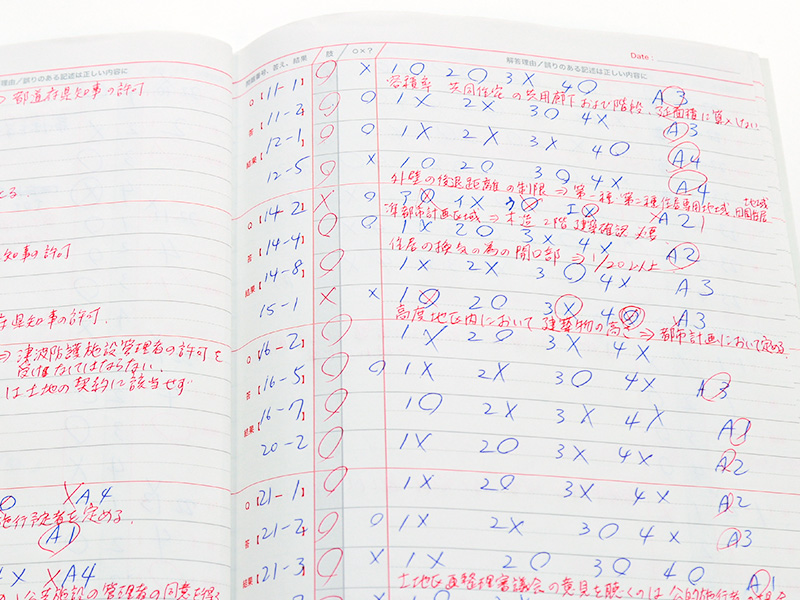 解答理由/誤りのある記述は正しい内容に
⇒ 都道府県知事の許可
知事の許可
府県知事の許可.
⇒ 津波防護施設管理者の許可を
受けなくてはならない.
は土地の契約に該当せず
A4
施行予定者を定める.
A1
4X XA4
公共施設の管理者の同意を
問題番号、答え、結果 肢 O×? 解答理由/誤りのある記述は正しい内容に Date:
Q【 11-1 O X 1O 2O 3X 4O A3
容積率 共同住宅の共用廊下および階段、延面積に算入しない.
11-2 O O 1X 2X 3O 4X A3
12-1 O O 1X 2X 3X 4O A4
12-5 O X 1O 2O 3O 4X A4
外壁の後退距離の制限 ⇒ 第一種 第二種 住居専用地域、田園住居地域
14-2 X O イX エ A21
準都市計画区域 ⇒ 木造2階 建築確認 必要.
14-4 O O 1X 2O 3X 4X A2
住居の換気の為の開口部 ⇒ 1/20以上
14-8 O 1X 2X 3O 4X A3
15-1 X X 1O 2O 3X 4O A3
高度地区内において 建築物の高さ ⇒ 都市計画において定める.
16-2 O 1X 2O 3X 4X
16-5 O O 1X 2X 3O 4X A3
16-7 O 1O 2X 3X 4X A1
20-2 O 1X 2O 3X 4X A2
Q【 21-1 O 1X 2O 3X 4X A2
答【 21-2 O O 1X 2X 3O 4X A3
結果【 21-3 O X 1X 2O 3O 4O A1
土地区画整理審議会の意見を聴くのは 公的施行者の